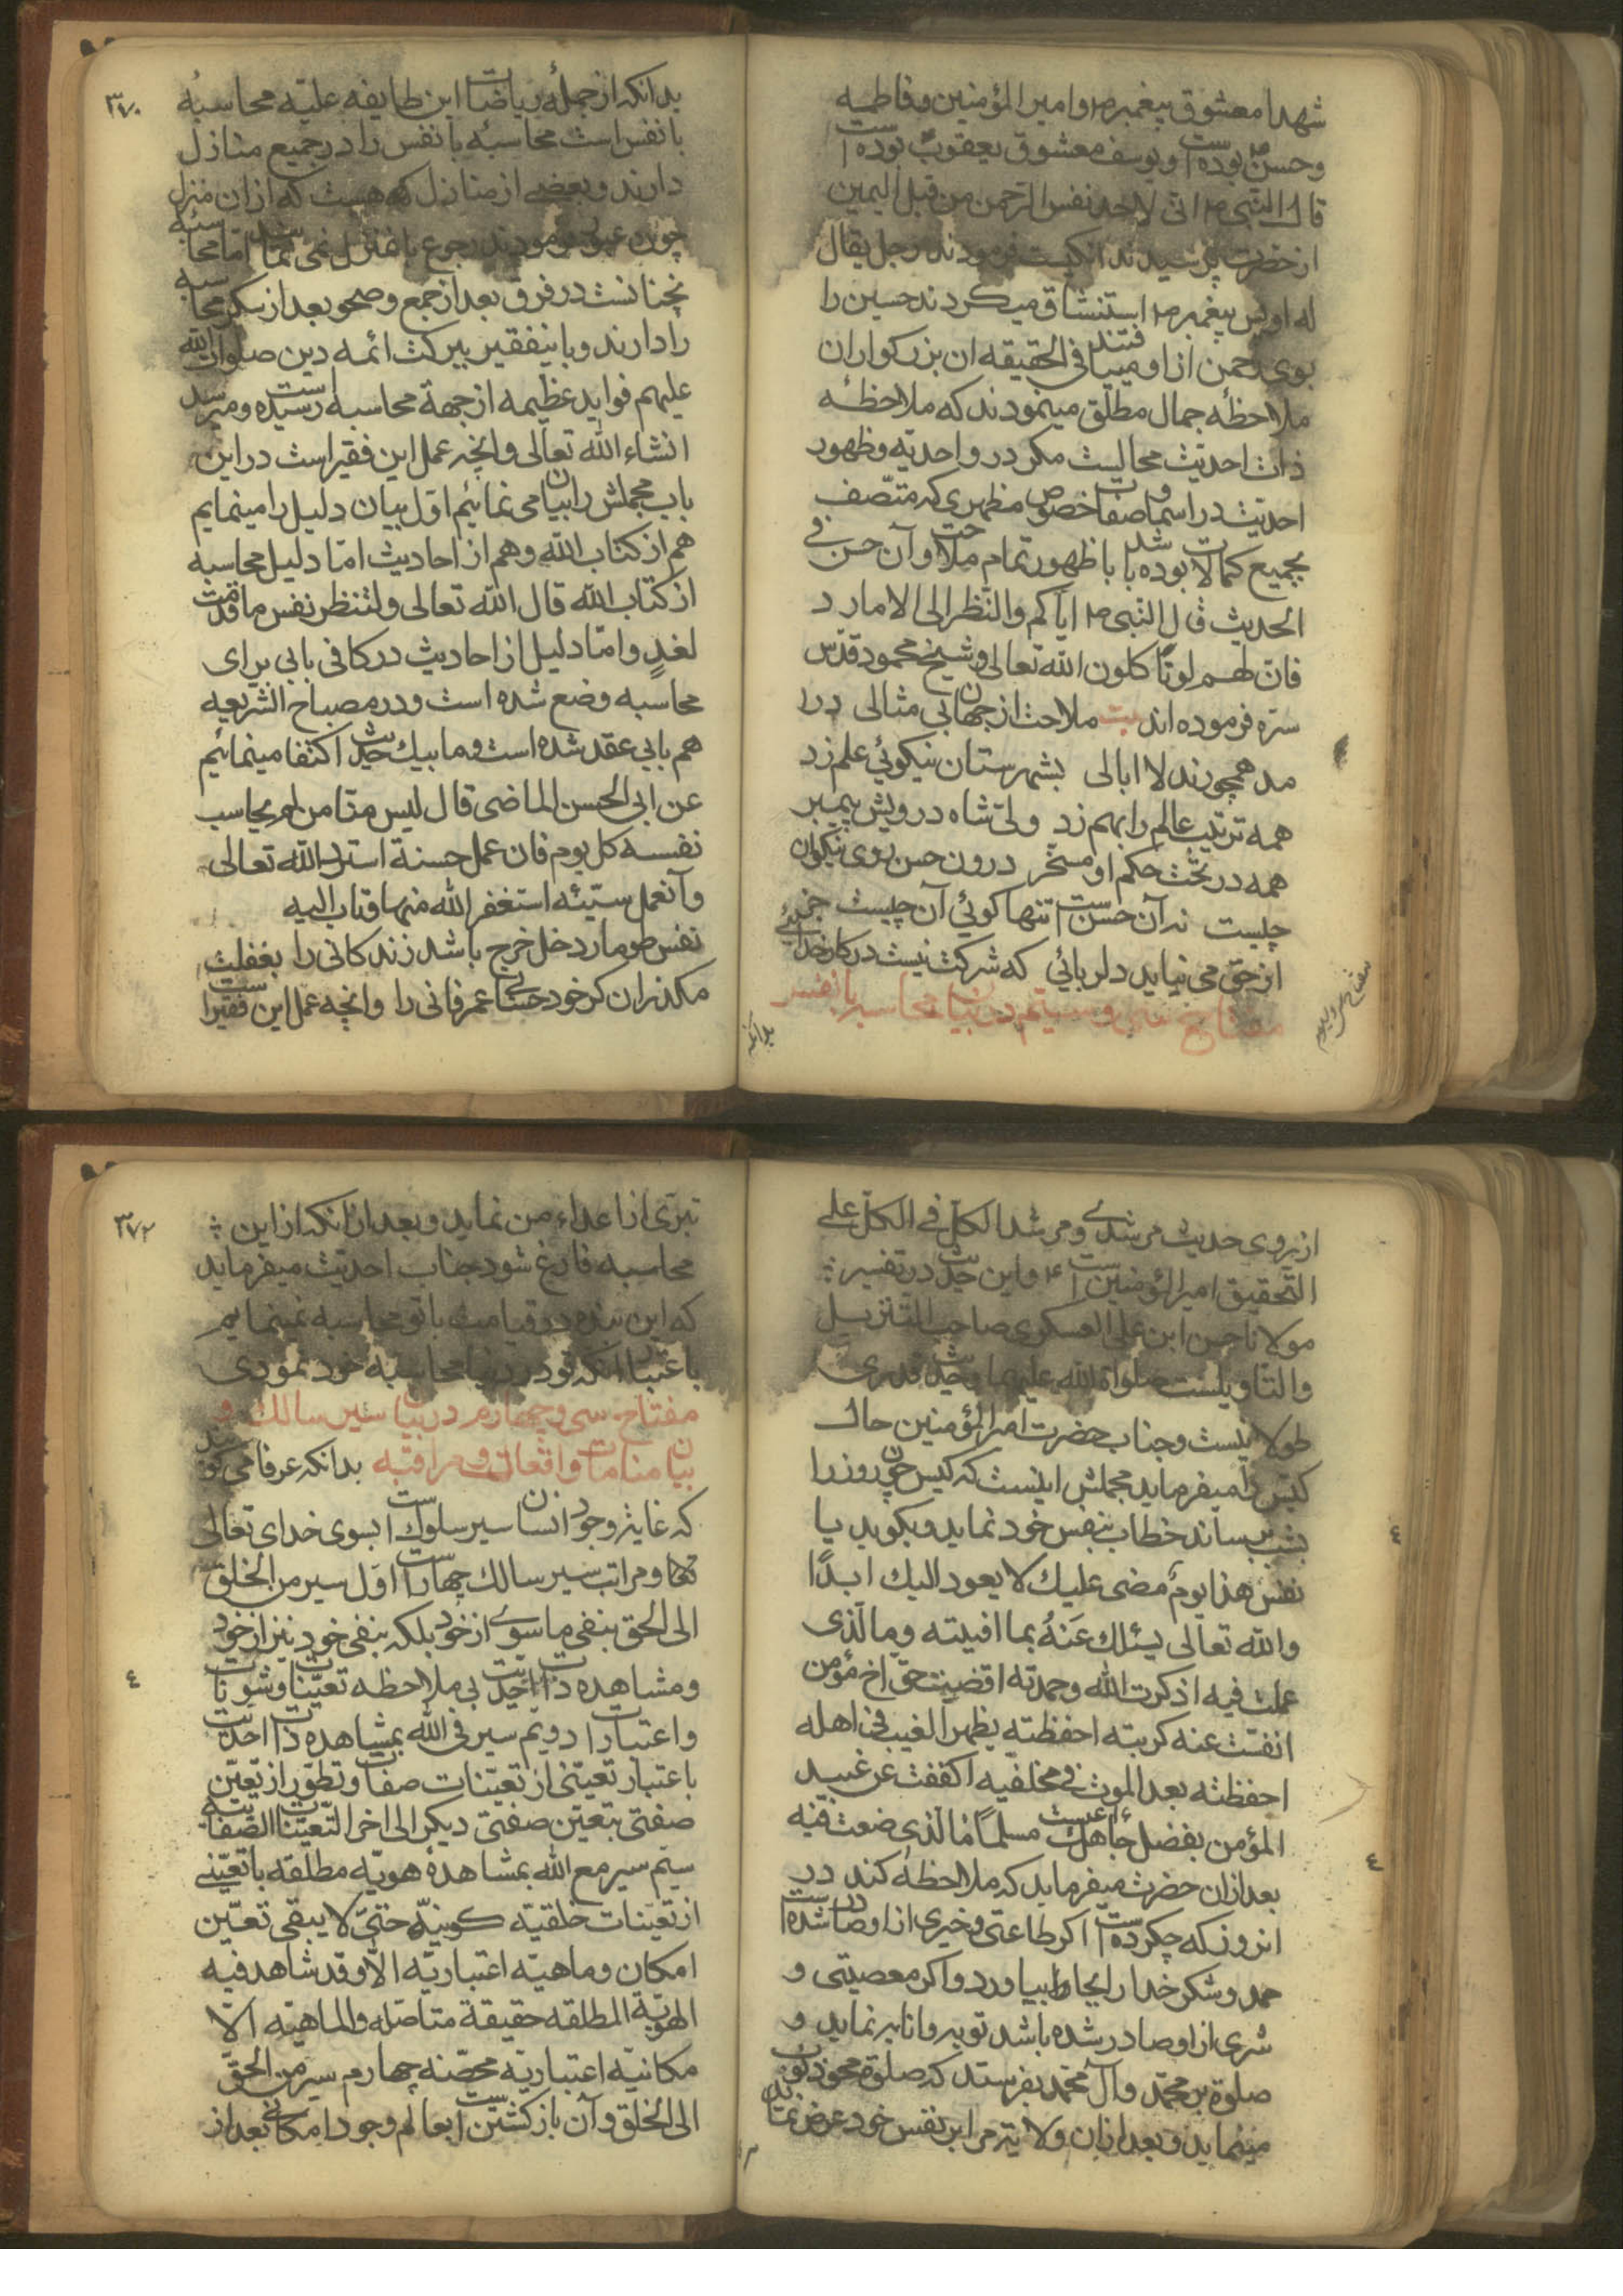 شهدا معشوق پیغمبر ص وامیر المؤمنین وفاطمه
وحسن بوده است ویوسف معشوق یعقوب بوده است
قال النبی ص انی لاجد نفس الرحمن من قبل الیمین
از حضرت پرسیدند انکیست فرمودند رجل یقال
له اویس پیغمبر ص استنشاق میکردند حسین را
بوی رحمن از او مییافتند فی الحقیقه ان بزرکواران
ملاحظهٔ جمال مطلق مینمودند که ملاحظهٔ
ذات احدیت محالیست مکر در واحدیته وظهور
احدیت در اسما وصفات خصوص مظهری که متصف
بجمیع کمالات بوده باشد باظهور تمام ملاحت وآن حسن فی
الحدیث قال النبی ص ایاکم والنظر الی الامارد
فان لهم لونا کلون الله تعالی وشیخ محمود قدس
سره فرموده اند بیت ملاحت از جهان بی مثالی درا
مد همچو رند لا ابالی بشهرستان نیکوئی علم زد
همه ترتیب عالم را بهم زد ولی شاه درویش پیمبر
همه در تحت حکم او مسخر درون حسن روی نیکوان
چیست نه آن حسن است تنها کوئی آن چیست جز
از حق می نیاید دلربائی که شرکت نیست در کار خدائی
مفتاح سی وسیم در بیان محاسبه بانفس
بدانکه
۳۷۰
بدانکه از جملهٔ ریاضات این طایفه علیّه محاسبهٔ
بانفس است محاسبه بانفس را در جمیع منازل
دارند وبعضی از منازل که هست که ازان منزل
چون عبور فرمودند رجوع بانمنزل نمی نمایند اما محاسبه
نچنانست در فرق بعد از جمع وصحو بعد از سکر محاسبه
را دارند وباینفقیر ببرکت ائمه دین صلوات الله
علیهم فواید عظیمه از جهة محاسبه رسیده است ومیرسد
انشاء الله تعالی وانچه عمل این فقیر است در این
باب مجملش را بیان می نمائیم اول بیان دلیل را مینمایم
هم از کتاب الله وهم از احادیث اما دلیل محاسبه
از کتاب الله قال الله تعالی ولتنظر نفس ما قدمت
لغدٍ واما دلیل از احادیث در کافی بابی برای
محاسبه وضع شده است ودر مصباح الشریعه
هم بابی عقد شده است وما بیک حدیث اکتفا مینمائیم
عن ابی الحسن الماضی قال لیس منا من لم یحاسب
نفسه کل یوم فان عمل حسنة استزاد الله تعالی
وآنعمل سیّئه استغفر الله منها وتاب الیه
نفس طومار دخل خرج باشد زندکانی را بغفلت
مکذران کر خود حساب عمر فانی را وانچه عمل این فقیر است
از روی حدیث مرشدی ومرشد الکل فی الکل علی
التحقیق امیر المؤمنین است ع واین حدیث در تفسیر
مولانا حسن ابن علی العسکری صاحب التنزیل
والتاویلست صلواة الله علیهما وحدیث قدری
طولانیست وجناب حضرت امیر المؤمنین حال
کیّس را میفرماید مجملش اینست که کیس چون روز را
بشب رساند خطاب بنفس خود نماید وبکوید یا
نفس هذا یومٌ مضی علیک لا یعود الیک ابدًا
والله تعالی یسئلک عَنهُ بما افنیته وما الذی
عملت فیه اذکرت الله وحمدته اقضیت حق اخ مؤمن
انفست عنه کربته احفظته بظهر الغیب فی اهله
احفظته بعد الموت فی مخلفیه اکففت عن غیبه
المؤمن بفضل جاهک ءاعنت مسلمًا ما الذی صنعت فیه
بعد ازان حضرت میفرماید که ملاحظه کند در
انروز که چکرده است اکر طاعتی وخیری از او صادر شده است
حمد وشکر خدا را بجا بیاورد واکر معصیتی و
شری از او صادر شده باشد توبه وانابه نماید و
صلوة بر محمد وآل محمد بفرستد که صلوة محو ذنوب
مینماید وبعد ازان ولایة مرا بر نفس خود عرض نماید
۳۷۲
تبری از اعداء من نماید وبعد از انکه از این
محاسبه فارغ شود جناب احدیت میفرماید
که این بنده در قیامت باتو محاسبه نمینمایم
باعتبار انکه تو در دنیا محاسبه خود نمودی
مفتاح سی وچهارم در بیان سیر سالک و
بیان منامات وواقعات ومراقبه بدانکه عرفا می کویند
که غایة وجود انسان سیر سلوک است بسوی خدای تعالی
ومراتب سیر سالک چهار است اول سیر من الخلق
الی الحق بنفی ما سوی از خود بلکه بنفی خود نیز از خود
ومشاهده ذات احدیت بی ملاحظه تعینات وشونات
واعتبارات دویم سیر فی الله بمشاهده ذات احدیت
باعتبار تعینی از تعینات صفات وتطور از تعین
صفتی بتعین صفتی دیکر الی اخر التعینات الصفاتیه
سیم سیر مع الله بمشاهدهٔ هویه مطلقه باتعینی
از تعینات خلقیه کونیه حتی لا یبقی تعین
امکان وماهیه اعتباریه الا وقد شاهد فیه
الهویة المطلقه حقیقة متاصله والماهیه الا
مکانیه اعتباریه محضه چهارم سیر من الحق
الی الخلق وآن باز کشتن است بعالم وجود امکانی بعد از